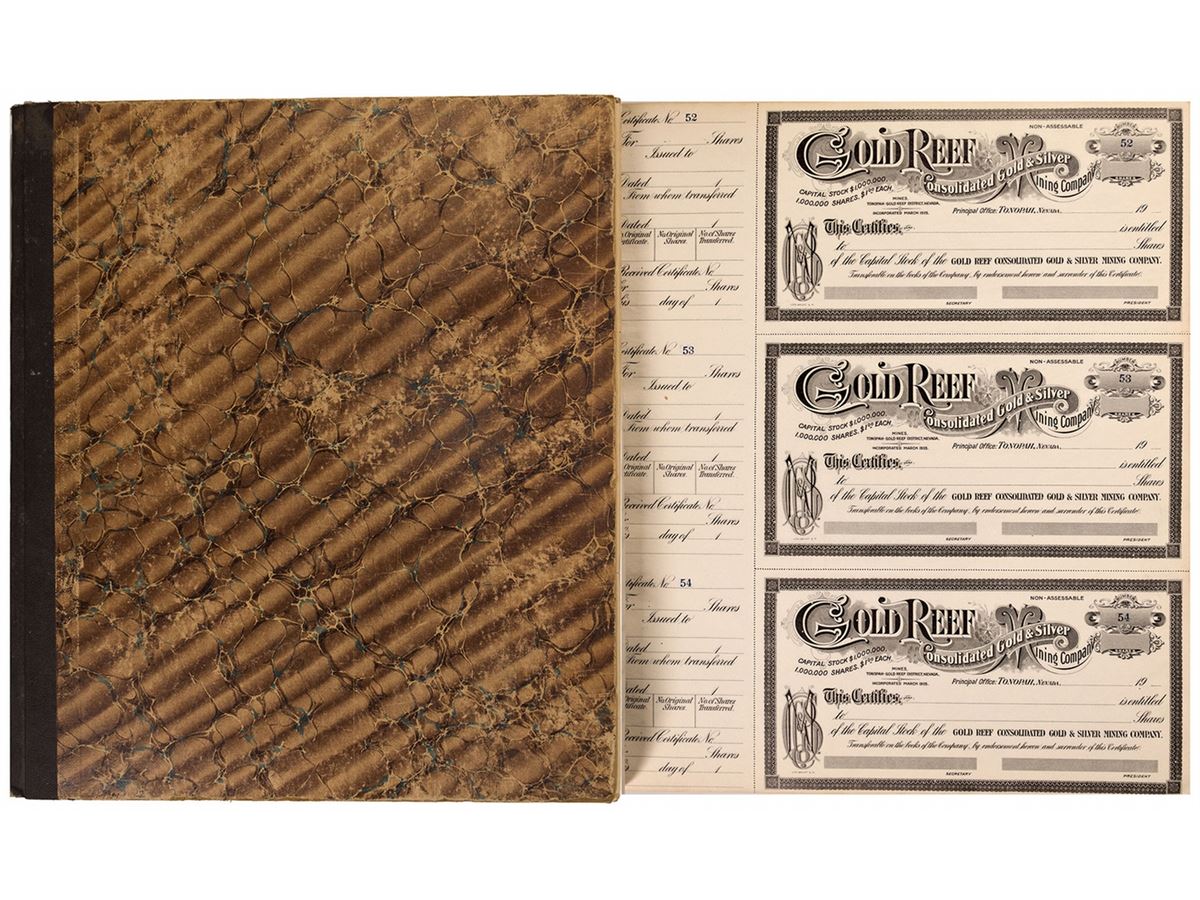 Certificate No. 52
For Shares
Issued to
Dated 1
From whom transferred
Dated 1
No. Original Shares. No. of Shares Transferred.
Received Certificate No.
Shares
day of 1
NON-ASSESSABLE
NUMBER
52
SHARES
GOLD REEF
Consolidated Gold & Silver
Mining Company
CAPITAL STOCK $1,000,000.
1,000,000 SHARES, $1.00 EACH.
MINES,
TONOPAH GOLD REEF DISTRICT, NEVADA.
INCORPORATED MARCH 1925.
Principal Office: TONOPAH, NEVADA, 19
This Certifies, that is entitled
to Shares
of the Capital Stock of the GOLD REEF CONSOLIDATED GOLD & SILVER MINING COMPANY.
Transferable on the books of the Company, by endorsement hereon and surrender of this Certificate.
SECRETARY PRESIDENT
Certificate No. 53
For Shares
Issued to
Dated 1
From whom transferred
Dated 1
No. Original Shares. No. of Shares Transferred.
Received Certificate No.
Shares
day of 1
NON-ASSESSABLE
NUMBER
53
SHARES
GOLD REEF
Consolidated Gold & Silver
Mining Company
CAPITAL STOCK $1,000,000.
1,000,000 SHARES, $1.00 EACH.
MINES,
TONOPAH GOLD REEF DISTRICT, NEVADA.
INCORPORATED MARCH 1925.
Principal Office: TONOPAH, NEVADA, 19
This Certifies, that is entitled
to Shares
of the Capital Stock of the GOLD REEF CONSOLIDATED GOLD & SILVER MINING COMPANY.
Transferable on the books of the Company, by endorsement hereon and surrender of this Certificate.
SECRETARY PRESIDENT
Certificate No. 54
For Shares
Issued to
Dated 1
From whom transferred
Dated 1
No. Original Shares. No. of Shares Transferred.
Received Certificate No.
Shares
day of 1
NON-ASSESSABLE
NUMBER
54
SHARES
GOLD REEF
Consolidated Gold & Silver
Mining Company
CAPITAL STOCK $1,000,000.
1,000,000 SHARES, $1.00 EACH.
MINES,
TONOPAH GOLD REEF DISTRICT, NEVADA.
INCORPORATED MARCH 1925.
Principal Office: TONOPAH, NEVADA, 19
This Certifies, that is entitled
to Shares
of the Capital Stock of the GOLD REEF CONSOLIDATED GOLD & SILVER MINING COMPANY.
Transferable on the books of the Company, by endorsement hereon and surrender of this Certificate.
SECRETARY PRESIDENT